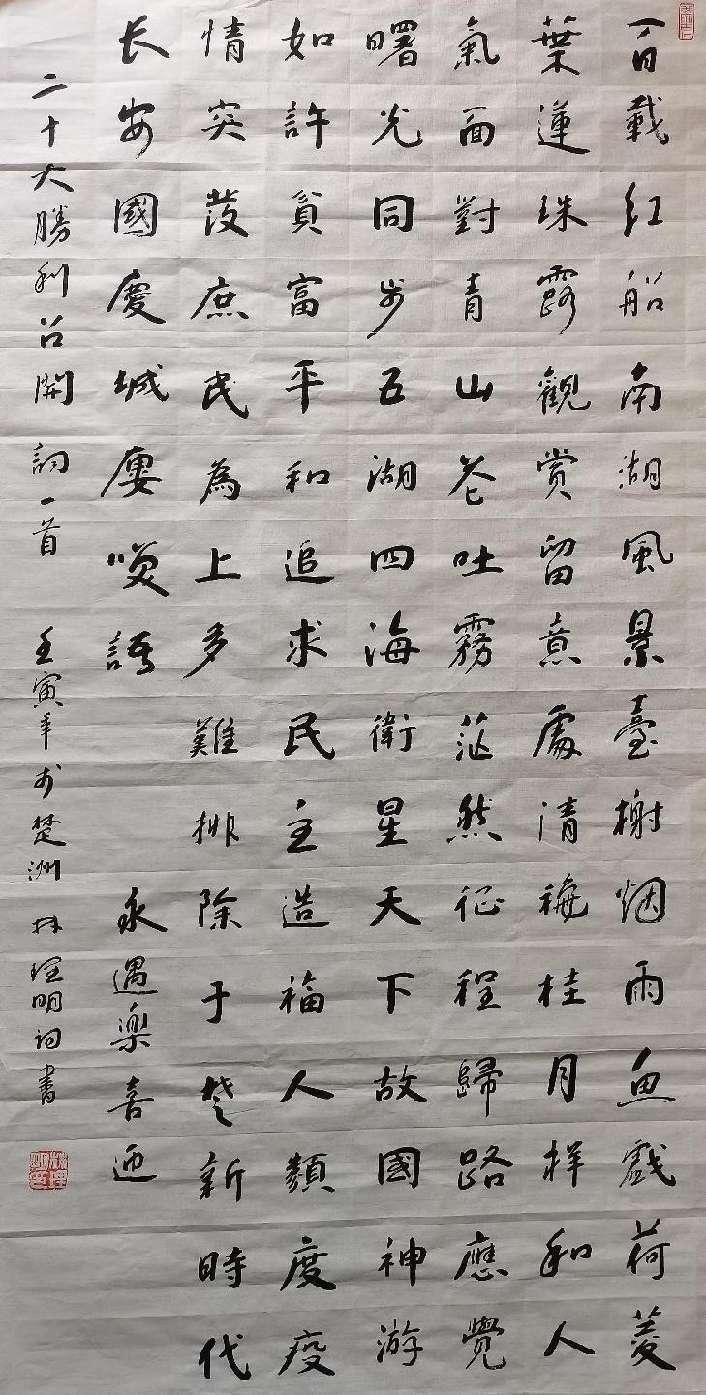 百載红船南湖風景臺榭烟雨魚戲荷菱
葉蓮珠露觀賞留意處清晚桂月祥和人
氣面對青山卷吐霧茫然征程歸路應覺
曙光同步五湖四海衛星天下故國神游
如許貧富平和追求民主造福人類度疫
情突發庶民為上多難排除于楚新時代
长安國慶城廔喚語 永遇樂喜迎
二十大勝利召開 詞一首 壬寅年於楚洲林理明詞書